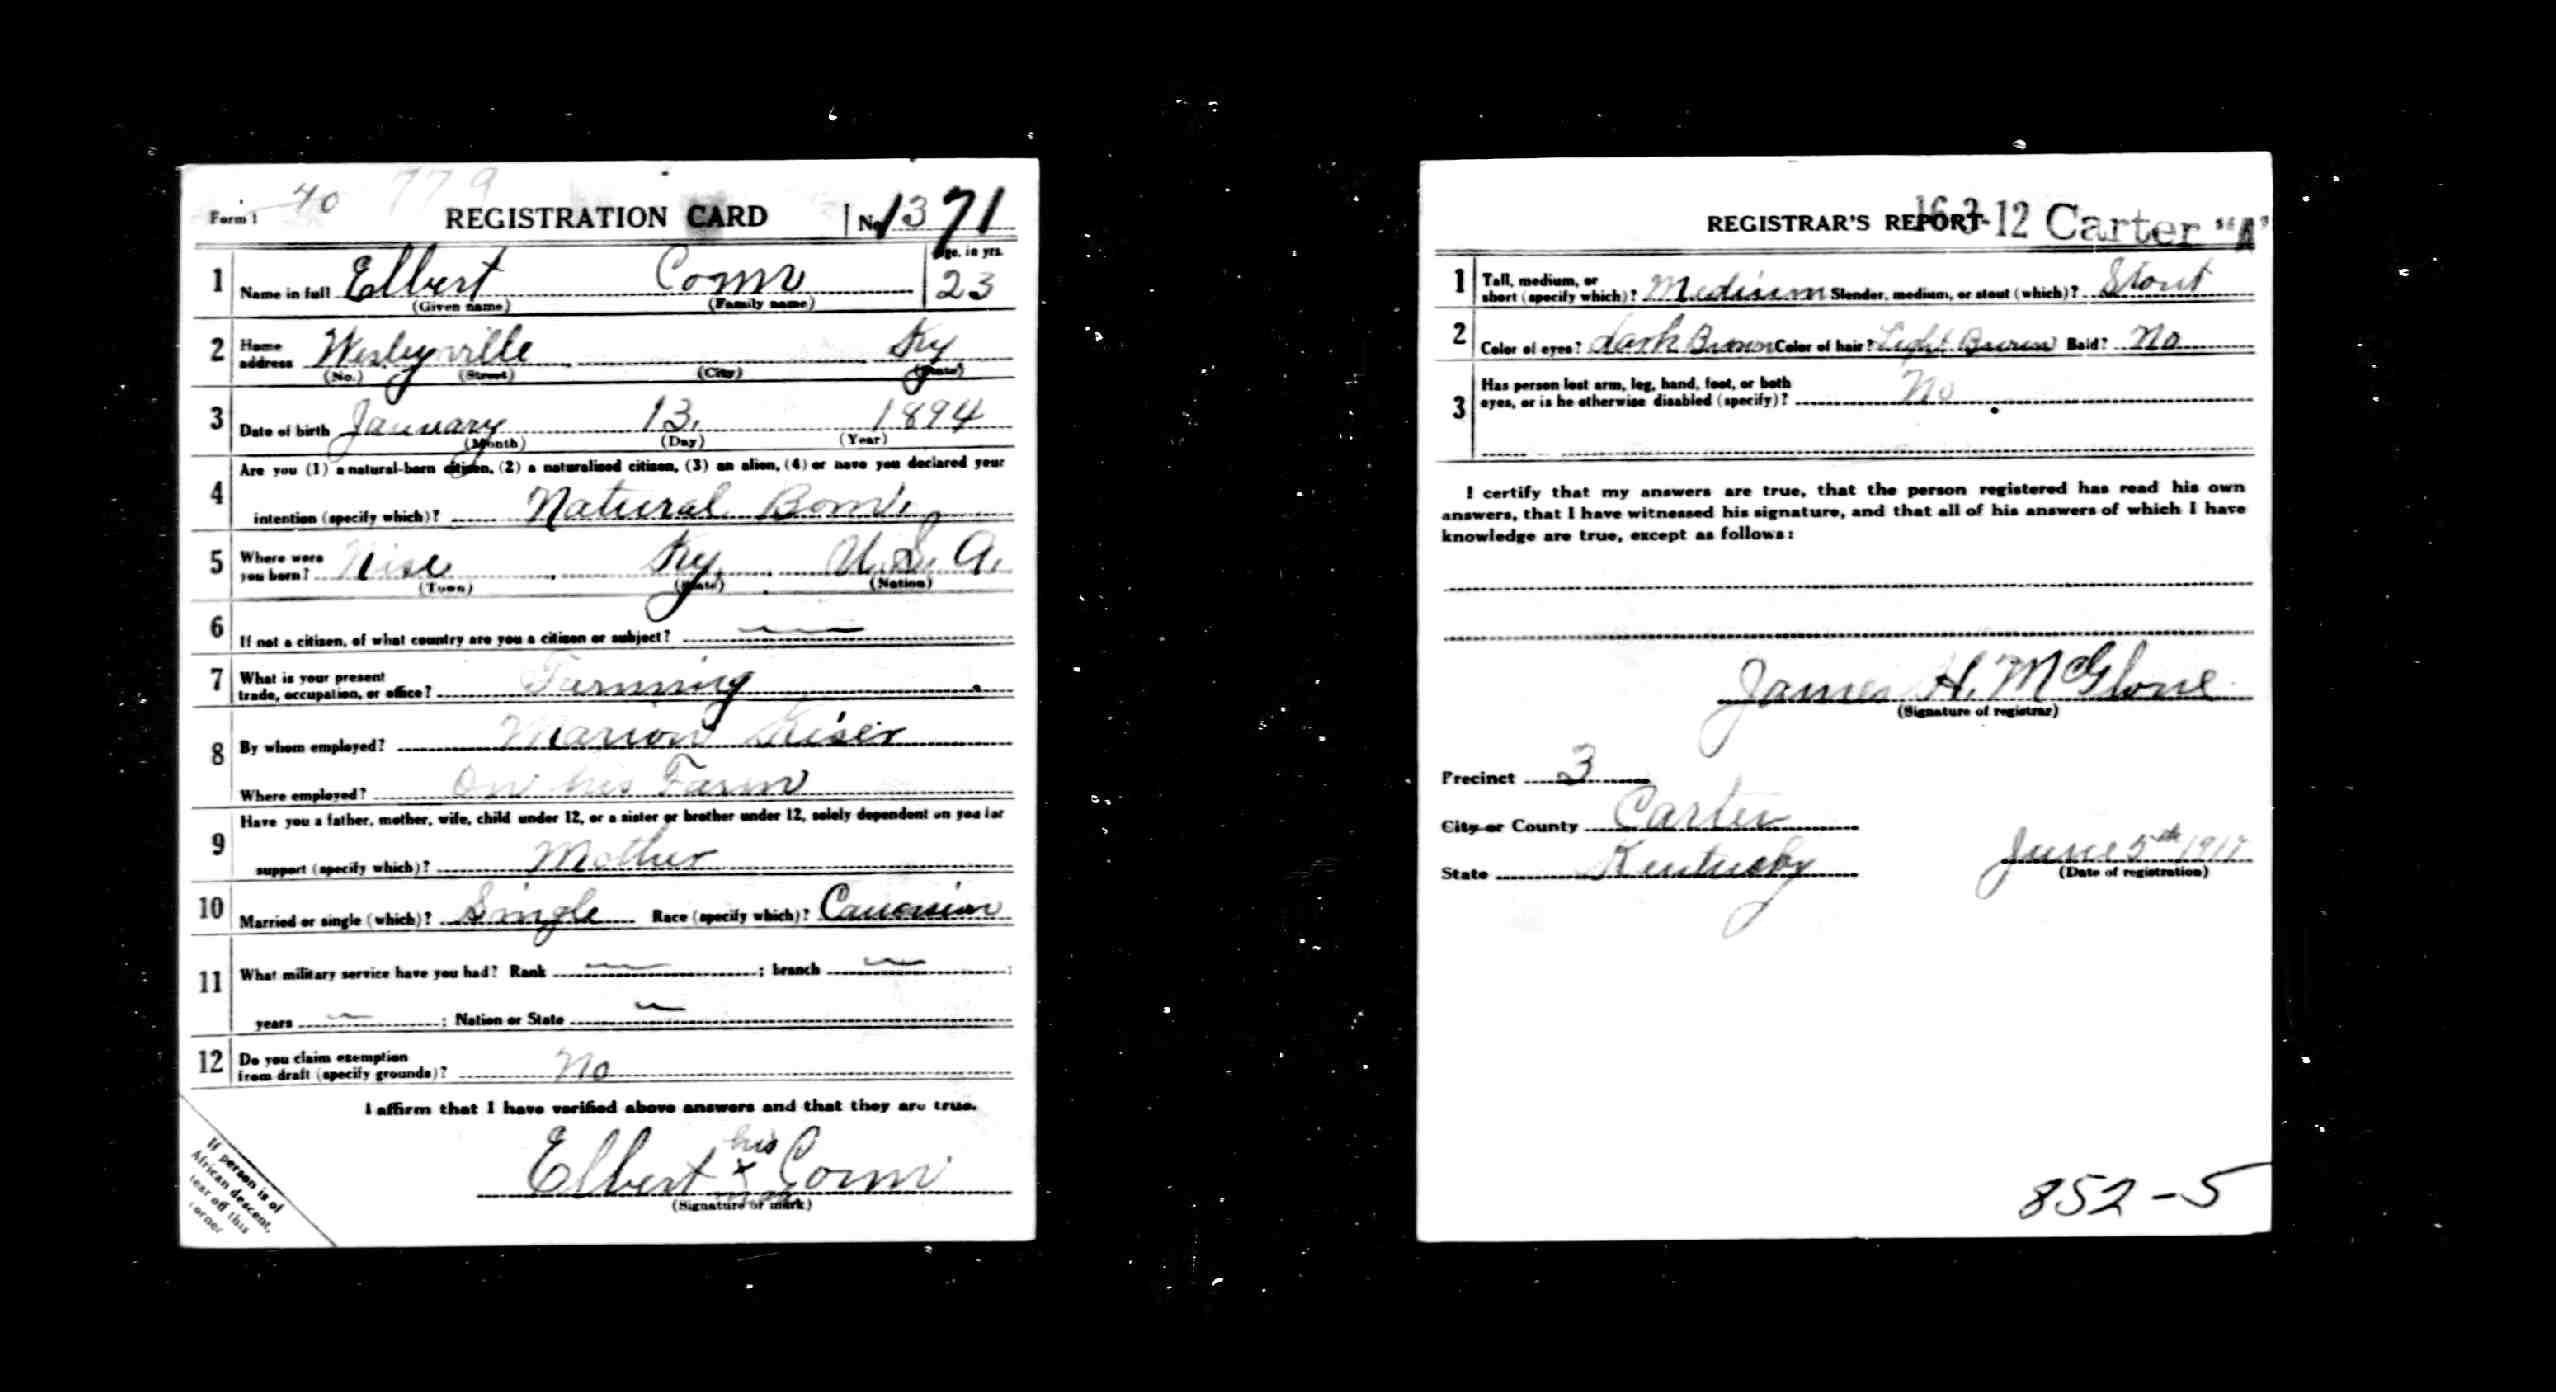 Form 1 40 779 REGISTRATION CARD No. 1371
1 Name in full Elbert Conn Age, in yrs. 23
(Given name) (Family name)
2 Home address Wesleyville Ky.
(No.) (Street) (City) (State)
3 Date of birth January 13, 1894
(Month) (Day) (Year)
4 Are you (1) a natural-born citizen, (2) a naturalized citizen, (3) an alien, (4) or have you declared your
intention (specify which)? Natural Born.
5 Where were you born? Wise Ky. U. S. A.
(Town) (State) (Nation)
6 If not a citizen, of what country are you a citizen or subject? —
7 What is your present trade, occupation, or office? Farming
8 By whom employed? Marion Kiser
Where employed? On his Farm
9 Have you a father, mother, wife, child under 12, or a sister or brother under 12, solely dependent on you for
support (specify which)? Mother
10 Married or single (which)? Single Race (specify which)? Caucasian
11 What military service have you had? Rank — ; branch — ;
years — ; Nation or State —
12 Do you claim exemption from draft (specify grounds)? No
I affirm that I have verified above answers and that they are true.
his
Elbert x Conn
mark
(Signature or mark)
If person is of
African descent,
tear off this
corner
REGISTRAR'S REPORT 16-3-12 Carter "A"
1 Tall, medium, or short (specify which)? Medium Slender, medium, or stout (which)? Stout
2 Color of eyes? Dark Brown Color of hair? Light Brown Bald? No
3 Has person lost arm, leg, hand, foot, or both
eyes, or is he otherwise disabled (specify)? No
I certify that my answers are true, that the person registered has read his own
answers, that I have witnessed his signature, and that all of his answers of which I have
knowledge are true, except as follows:
James H. McGlone
(Signature of registrar)
Precinct 3
City or County Carter
State Kentucky June 5th 1917
(Date of registration)
852-5